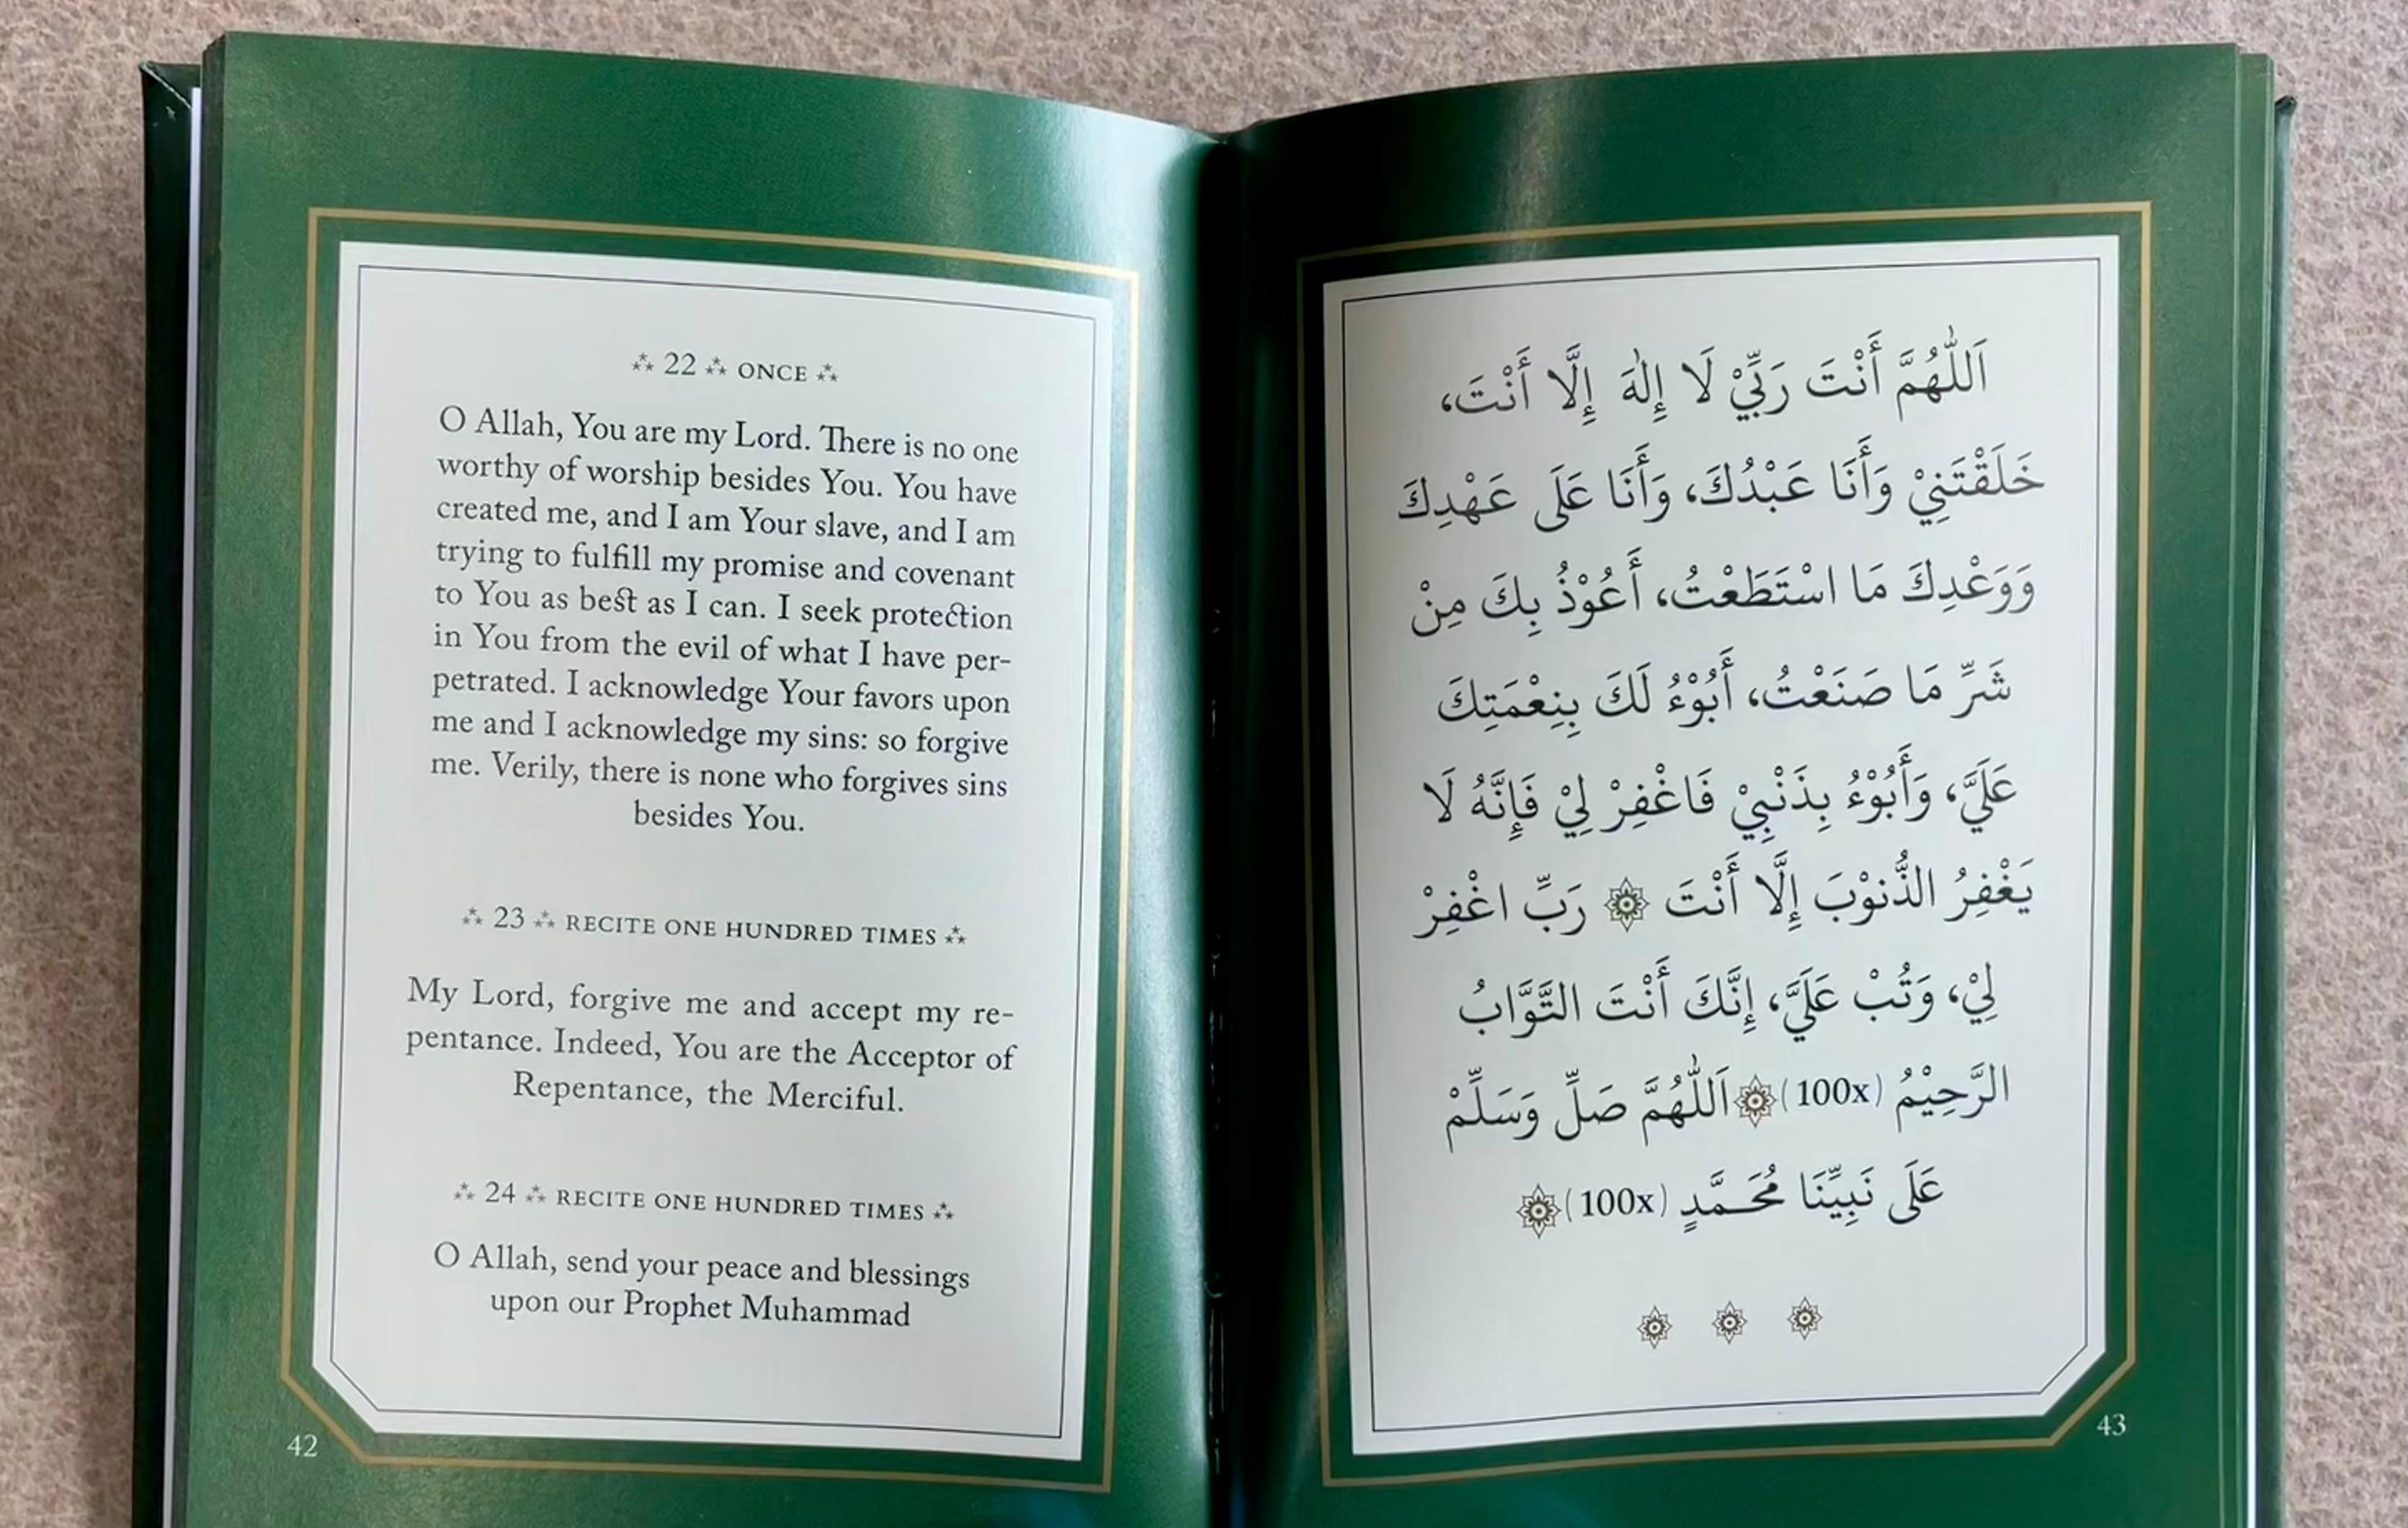 ⁂ 22 ⁂ ONCE ⁂
O Allah, You are my Lord. There is no one
worthy of worship besides You. You have
created me, and I am Your slave, and I am
trying to fulfill my promise and covenant
to You as best as I can. I seek protection
in You from the evil of what I have per-
petrated. I acknowledge Your favors upon
me and I acknowledge my sins: so forgive
me. Verily, there is none who forgives sins
besides You.
⁂ 23 ⁂ RECITE ONE HUNDRED TIMES ⁂
My Lord, forgive me and accept my re-
pentance. Indeed, You are the Acceptor of
Repentance, the Merciful.
⁂ 24 ⁂ RECITE ONE HUNDRED TIMES ⁂
O Allah, send your peace and blessings
upon our Prophet Muhammad
42
اَللّٰهُمَّ أَنْتَ رَبِّيْ لَا إِلٰهَ إِلَّا أَنْتَ،
خَلَقْتَنِيْ وَأَنَا عَبْدُكَ، وَأَنَا عَلَى عَهْدِكَ
وَوَعْدِكَ مَا اسْتَطَعْتُ، أَعُوْذُ بِكَ مِنْ
شَرِّ مَا صَنَعْتُ، أَبُوْءُ لَكَ بِنِعْمَتِكَ
عَلَيَّ، وَأَبُوْءُ بِذَنْبِيْ فَاغْفِرْ لِيْ فَإِنَّهُ لَا
يَغْفِرُ الذُّنوْبَ إِلَّا أَنْتَ ۞ رَبِّ اغْفِرْ
لِيْ، وَتُبْ عَلَيَّ، إِنَّكَ أَنْتَ التَّوَّابُ
الرَّحِيْمُ (100x) ۞ اَللّٰهُمَّ صَلِّ وَسَلِّمْ
عَلَى نَبِيِّنَا مُحَـمَّدٍ (100x) ۞
43